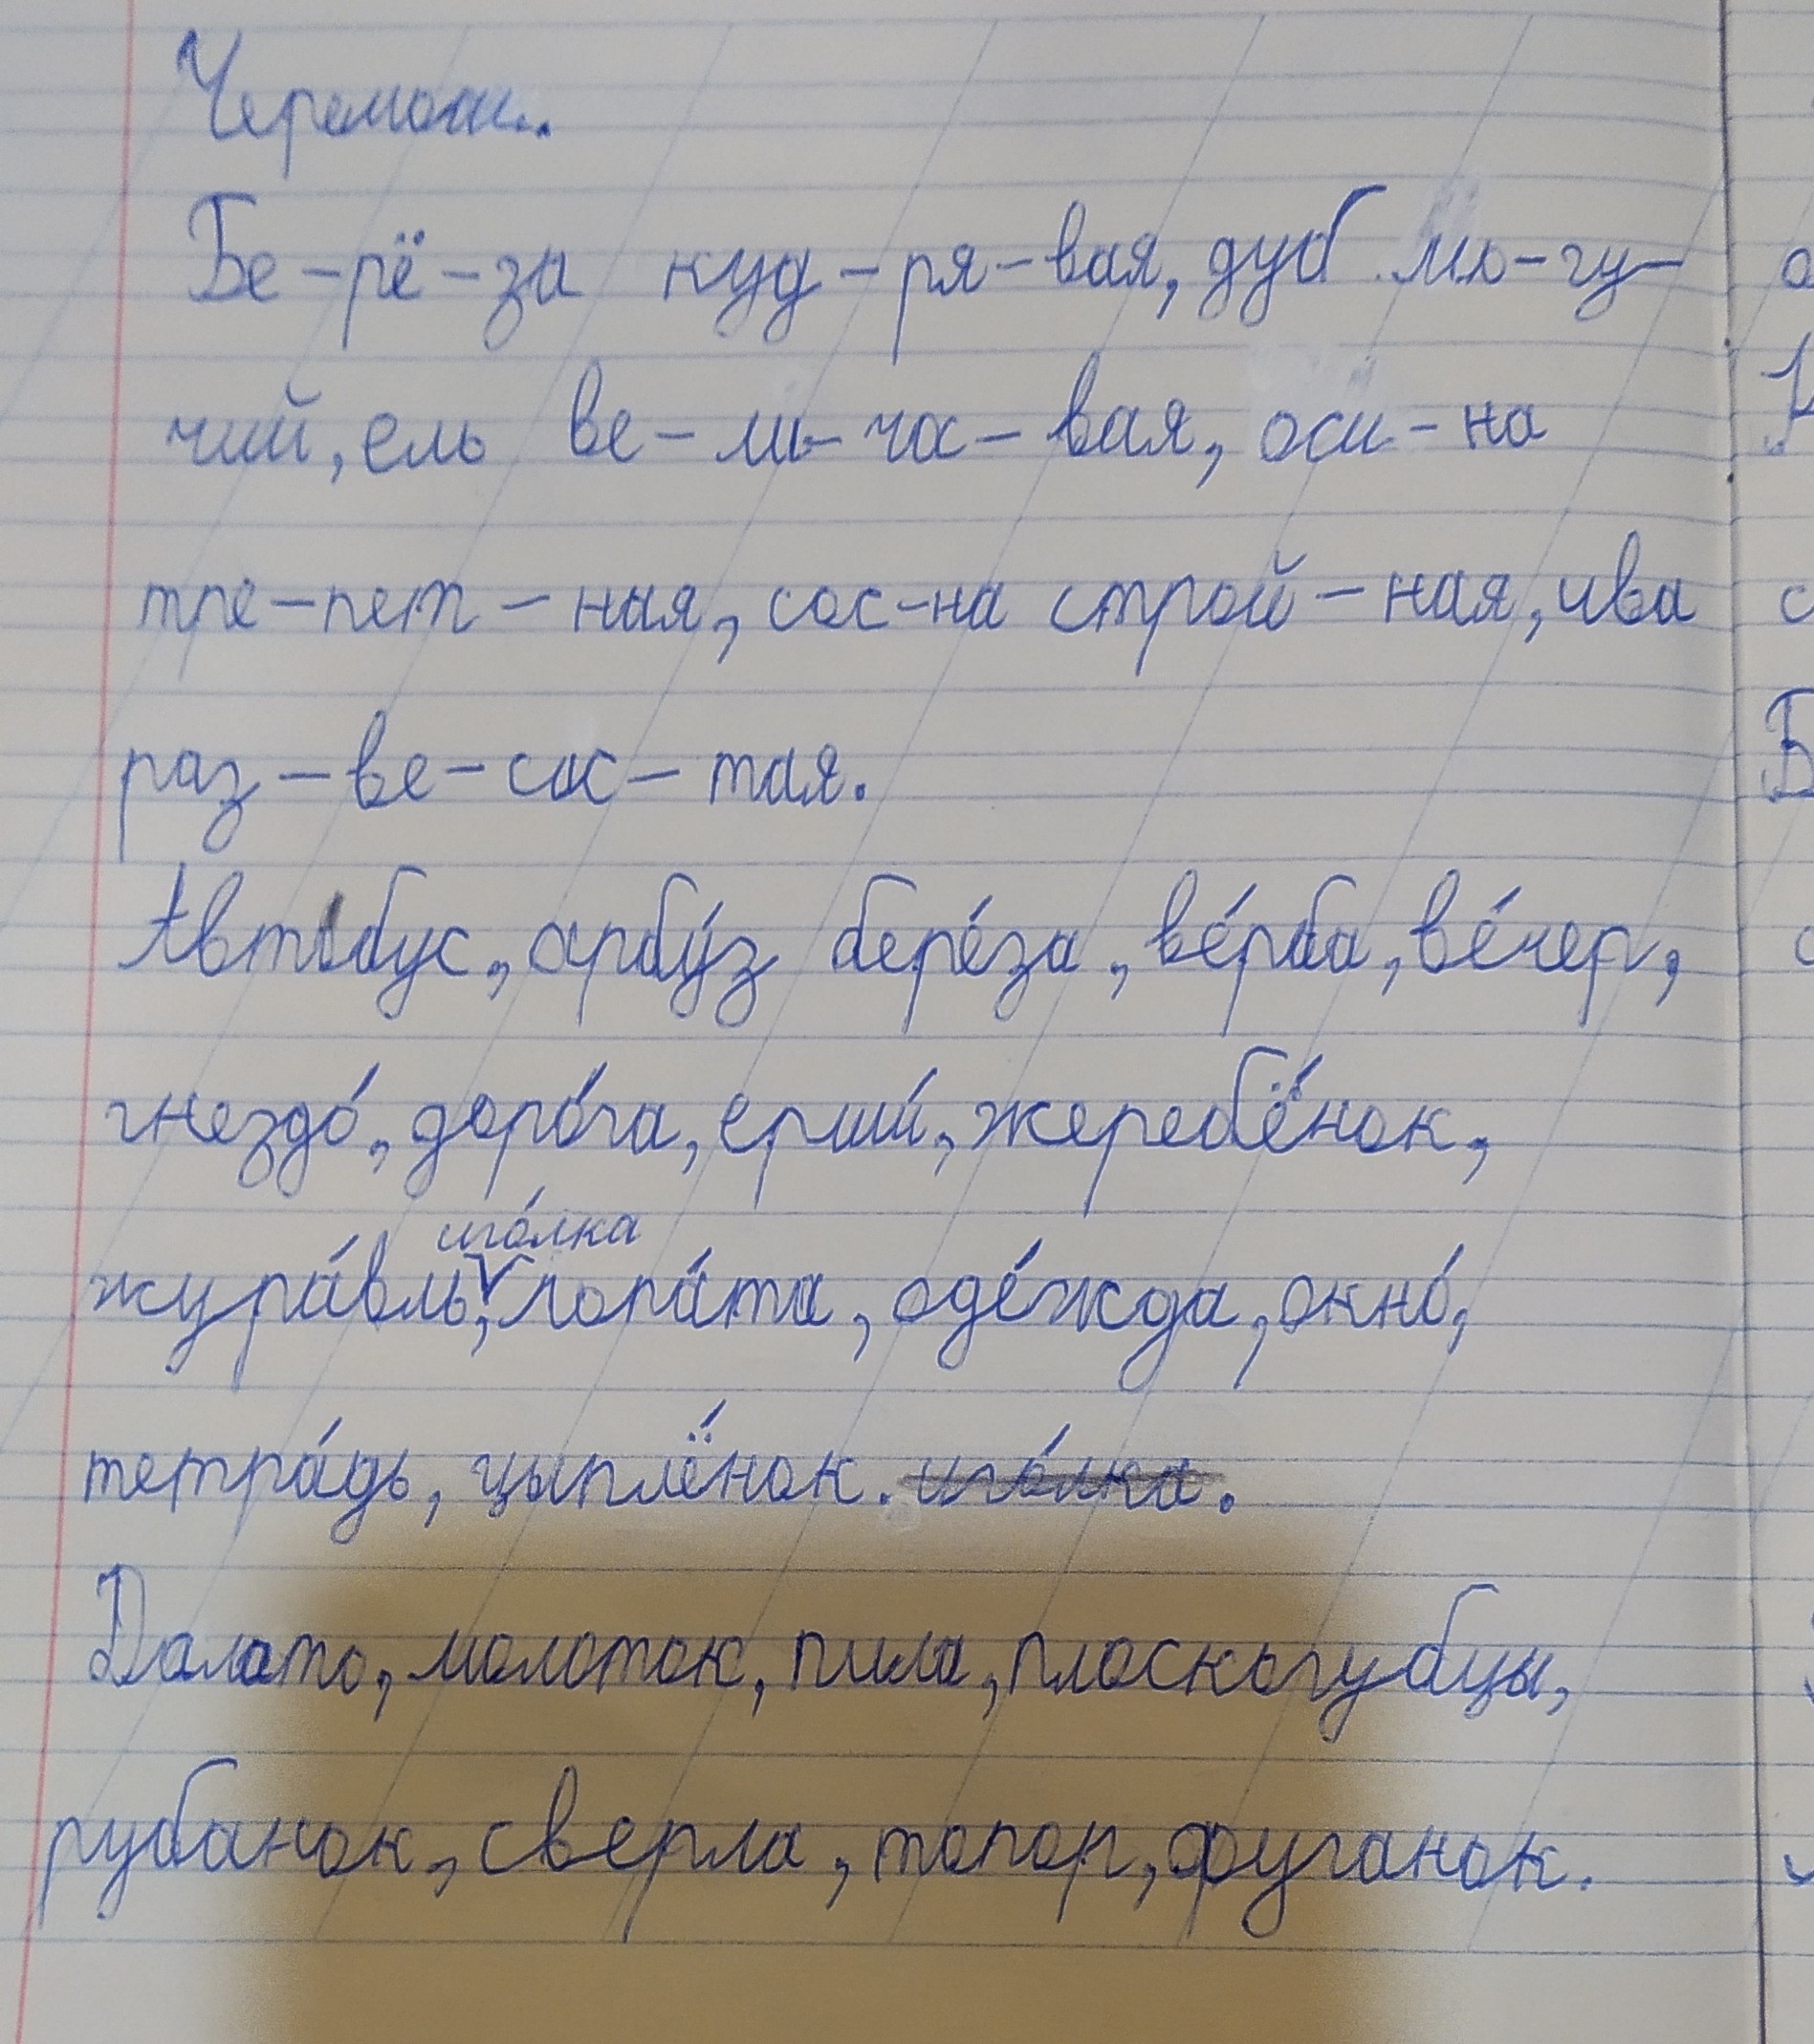 Бе-рё-за куд-ря-вая, дуб мо-гу-
чий, ель ве-ли-ча-вая, оси-на
тре-пет-ная, сос-на строй-ная, ива
раз-ве-сис-тая.
Автобус, арбу́з бере́за, ве́рба, ве́чер,
гнездо́, доро́га, ерши́, жеребё́нок,
иго́лка
жура́вль, лопа́та, оде́жда, окно́,
тетра́дь, цыплё́нок. иго́лка.
Далото, молоток, пила, плоскогубцы,
рубанок, сверла, топор, фуганок.